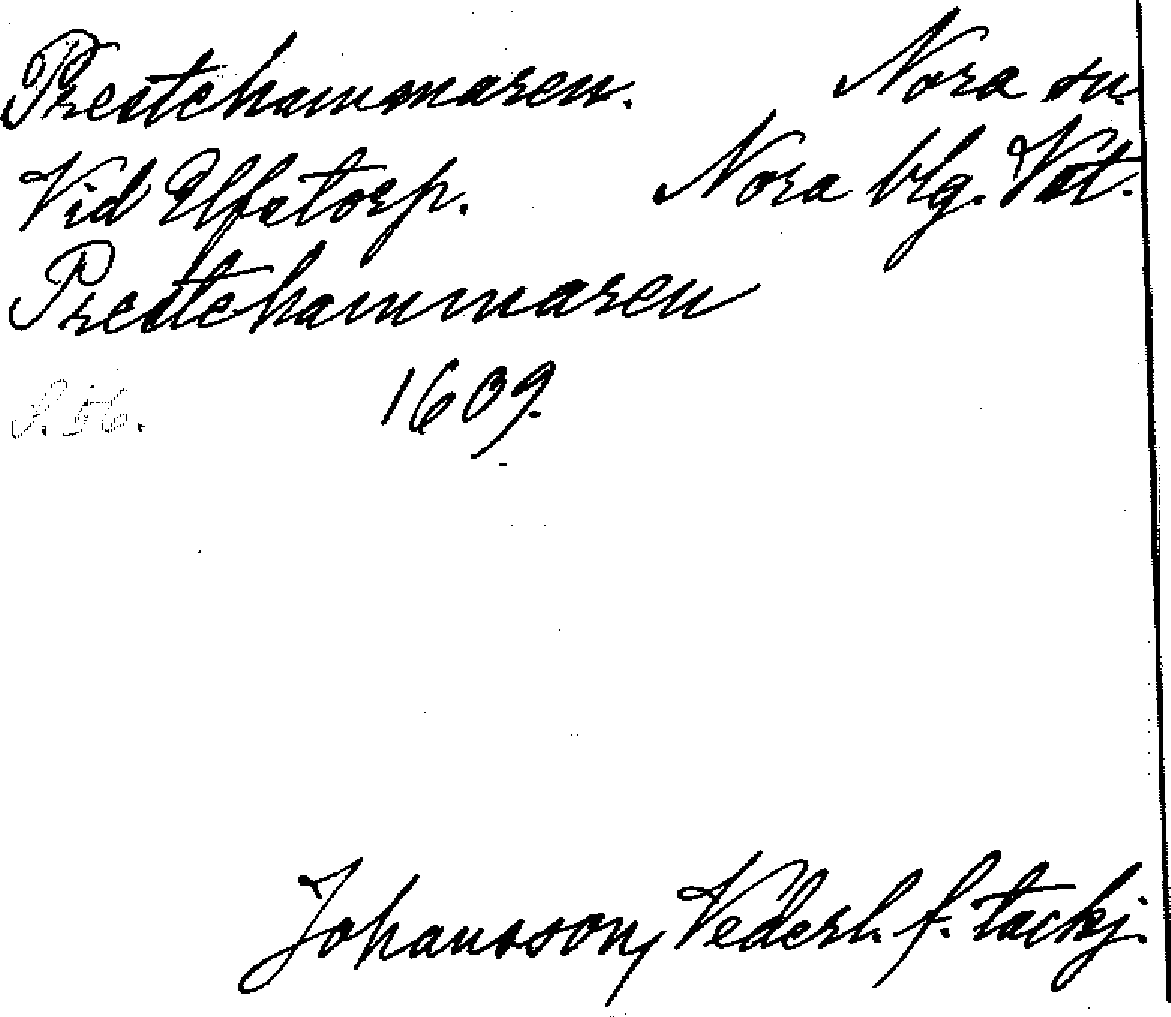 Prestehammaren. Nora sn.
Vid Elfstorp. Nora blg. Vst.
Prestehammaren
S. 56. 1609.
Johansson, Vederl. f. tackj.